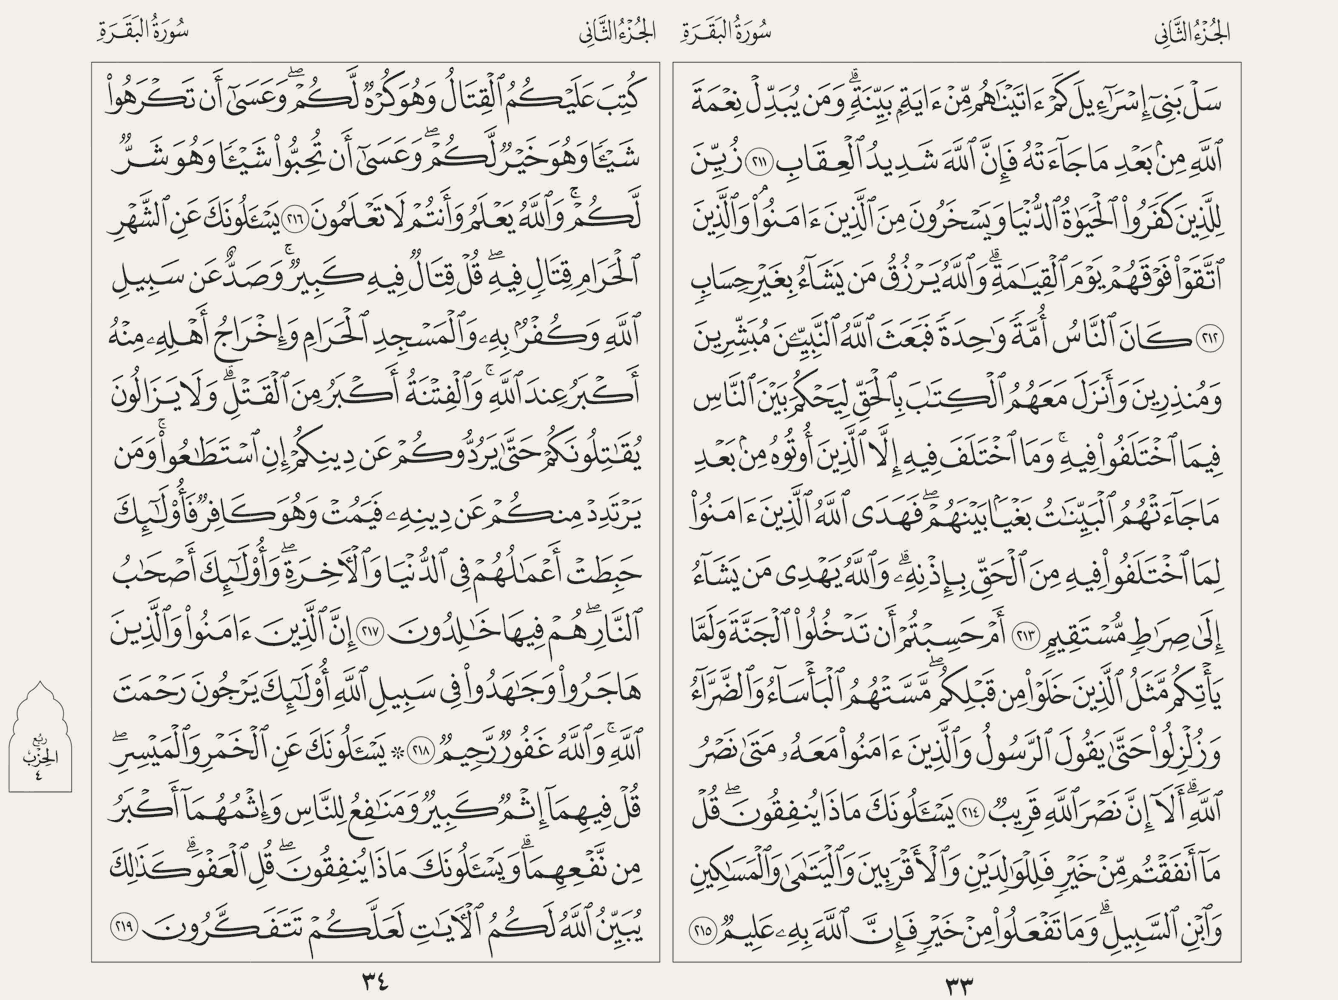 الجُزْءُ الثَّانِي
سُورَةُ البَقَرَةِ
سَلۡ بَنِيٓ إِسۡرَٰٓءِيلَ كَمۡ ءَاتَيۡنَٰهُم مِّنۡ ءَايَةِۭ بَيِّنَةٖۗ وَمَن يُبَدِّلۡ نِعۡمَةَ
ٱللَّهِ مِنۢ بَعۡدِ مَا جَآءَتۡهُ فَإِنَّ ٱللَّهَ شَدِيدُ ٱلۡعِقَابِ ٢١١ زُيِّنَ
لِلَّذِينَ كَفَرُواْ ٱلۡحَيَوٰةُ ٱلدُّنۡيَا وَيَسۡخَرُونَ مِنَ ٱلَّذِينَ ءَامَنُواْۘ وَٱلَّذِينَ
ٱتَّقَوۡاْ فَوۡقَهُمۡ يَوۡمَ ٱلۡقِيَٰمَةِۗ وَٱللَّهُ يَرۡزُقُ مَن يَشَآءُ بِغَيۡرِ حِسَابٖ
٢١٢ كَانَ ٱلنَّاسُ أُمَّةٗ وَٰحِدَةٗ فَبَعَثَ ٱللَّهُ ٱلنَّبِيِّـۧنَ مُبَشِّرِينَ
وَمُنذِرِينَ وَأَنزَلَ مَعَهُمُ ٱلۡكِتَٰبَ بِٱلۡحَقِّ لِيَحۡكُمَ بَيۡنَ ٱلنَّاسِ
فِيمَا ٱخۡتَلَفُواْ فِيهِۚ وَمَا ٱخۡتَلَفَ فِيهِ إِلَّا ٱلَّذِينَ أُوتُوهُ مِنۢ بَعۡدِ
مَا جَآءَتۡهُمُ ٱلۡبَيِّنَٰتُ بَغۡيَۢا بَيۡنَهُمۡۖ فَهَدَى ٱللَّهُ ٱلَّذِينَ ءَامَنُواْ
لِمَا ٱخۡتَلَفُواْ فِيهِ مِنَ ٱلۡحَقِّ بِإِذۡنِهِۦۗ وَٱللَّهُ يَهۡدِي مَن يَشَآءُ
إِلَىٰ صِرَٰطٖ مُّسۡتَقِيمٍ ٢١٣ أَمۡ حَسِبۡتُمۡ أَن تَدۡخُلُواْ ٱلۡجَنَّةَ وَلَمَّا
يَأۡتِكُم مَّثَلُ ٱلَّذِينَ خَلَوۡاْ مِن قَبۡلِكُمۖ مَّسَّتۡهُمُ ٱلۡبَأۡسَآءُ وَٱلضَّرَّآءُ
وَزُلۡزِلُواْ حَتَّىٰ يَقُولَ ٱلرَّسُولُ وَٱلَّذِينَ ءَامَنُواْ مَعَهُۥ مَتَىٰ نَصۡرُ
ٱللَّهِۗ أَلَآ إِنَّ نَصۡرَ ٱللَّهِ قَرِيبٞ ٢١٤ يَسۡـَٔلُونَكَ مَاذَا يُنفِقُونَۖ قُلۡ
مَآ أَنفَقۡتُم مِّنۡ خَيۡرٖ فَلِلۡوَٰلِدَيۡنِ وَٱلۡأَقۡرَبِينَ وَٱلۡيَتَٰمَىٰ وَٱلۡمَسَٰكِينِ
وَٱبۡنِ ٱلسَّبِيلِۗ وَمَا تَفۡعَلُواْ مِنۡ خَيۡرٖ فَإِنَّ ٱللَّهَ بِهِۦ عَلِيمٞ ٢١٥
٣٣
الجُزْءُ الثَّانِي
سُورَةُ البَقَرَةِ
كُتِبَ عَلَيۡكُمُ ٱلۡقِتَالُ وَهُوَ كُرۡهٞ لَّكُمۡۖ وَعَسَىٰٓ أَن تَكۡرَهُواْ
شَيۡـٔٗا وَهُوَ خَيۡرٞ لَّكُمۡۖ وَعَسَىٰٓ أَن تُحِبُّواْ شَيۡـٔٗا وَهُوَ شَرّٞ
لَّكُمۡۚ وَٱللَّهُ يَعۡلَمُ وَأَنتُمۡ لَا تَعۡلَمُونَ ٢١٦ يَسۡـَٔلُونَكَ عَنِ ٱلشَّهۡرِ
ٱلۡحَرَامِ قِتَالٖ فِيهِۖ قُلۡ قِتَالٞ فِيهِ كَبِيرٞۚ وَصَدٌّ عَن سَبِيلِ
ٱللَّهِ وَكُفۡرُۢ بِهِۦ وَٱلۡمَسۡجِدِ ٱلۡحَرَامِ وَإِخۡرَاجُ أَهۡلِهِۦ مِنۡهُ
أَكۡبَرُ عِندَ ٱللَّهِۚ وَٱلۡفِتۡنَةُ أَكۡبَرُ مِنَ ٱلۡقَتۡلِۗ وَلَا يَزَالُونَ
يُقَٰتِلُونَكُمۡ حَتَّىٰ يَرُدُّوكُمۡ عَن دِينِكُمۡ إِنِ ٱسۡتَطَٰعُواْۚ وَمَن
يَرۡتَدِدۡ مِنكُمۡ عَن دِينِهِۦ فَيَمُتۡ وَهُوَ كَافِرٞ فَأُوْلَٰٓئِكَ
حَبِطَتۡ أَعۡمَٰلُهُمۡ فِي ٱلدُّنۡيَا وَٱلۡأٓخِرَةِۖ وَأُوْلَٰٓئِكَ أَصۡحَٰبُ
ٱلنَّارِۖ هُمۡ فِيهَا خَٰلِدُونَ ٢١٧ إِنَّ ٱلَّذِينَ ءَامَنُواْ وَٱلَّذِينَ
هَاجَرُواْ وَجَٰهَدُواْ فِي سَبِيلِ ٱللَّهِ أُوْلَٰٓئِكَ يَرۡجُونَ رَحۡمَتَ
ٱللَّهِۚ وَٱللَّهُ غَفُورٞ رَّحِيمٞ ٢١٨ ۞ يَسۡـَٔلُونَكَ عَنِ ٱلۡخَمۡرِ وَٱلۡمَيۡسِرِۖ
قُلۡ فِيهِمَآ إِثۡمٞ كَبِيرٞ وَمَنَٰفِعُ لِلنَّاسِ وَإِثۡمُهُمَآ أَكۡبَرُ
مِن نَّفۡعِهِمَاۗ وَيَسۡـَٔلُونَكَ مَاذَا يُنفِقُونَۖ قُلِ ٱلۡعَفۡوَۗ كَذَٰلِكَ
يُبَيِّنُ ٱللَّهُ لَكُمُ ٱلۡأٓيَٰتِ لَعَلَّكُمۡ تَتَفَكَّرُونَ ٢١٩
رُبْع
الحِزْب
٤
٣٤